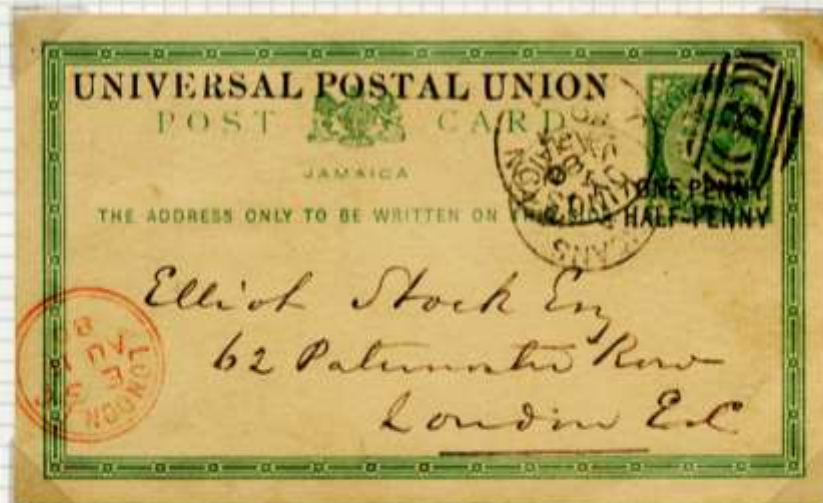 UNIVERSAL POSTAL UNION
POST CARD
JAMAICA
THE ADDRESS ONLY TO BE WRITTEN ON THIS SIDE
ONE PENNY
HALF-PENNY
Elliot Stock Esq
62 Paternoster Row
London E.C
LONDON
AU
80